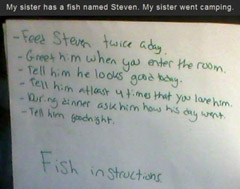 My sister has a fish named Steven. My sister went camping.
- Feed Steven twice a day.
- Greet him when you enter the room.
- Tell him he looks good today.
- Tell him atleast 4 times that you love him.
- During dinner ask him how his day went.
- Tell him goodnight.
Fish instructions